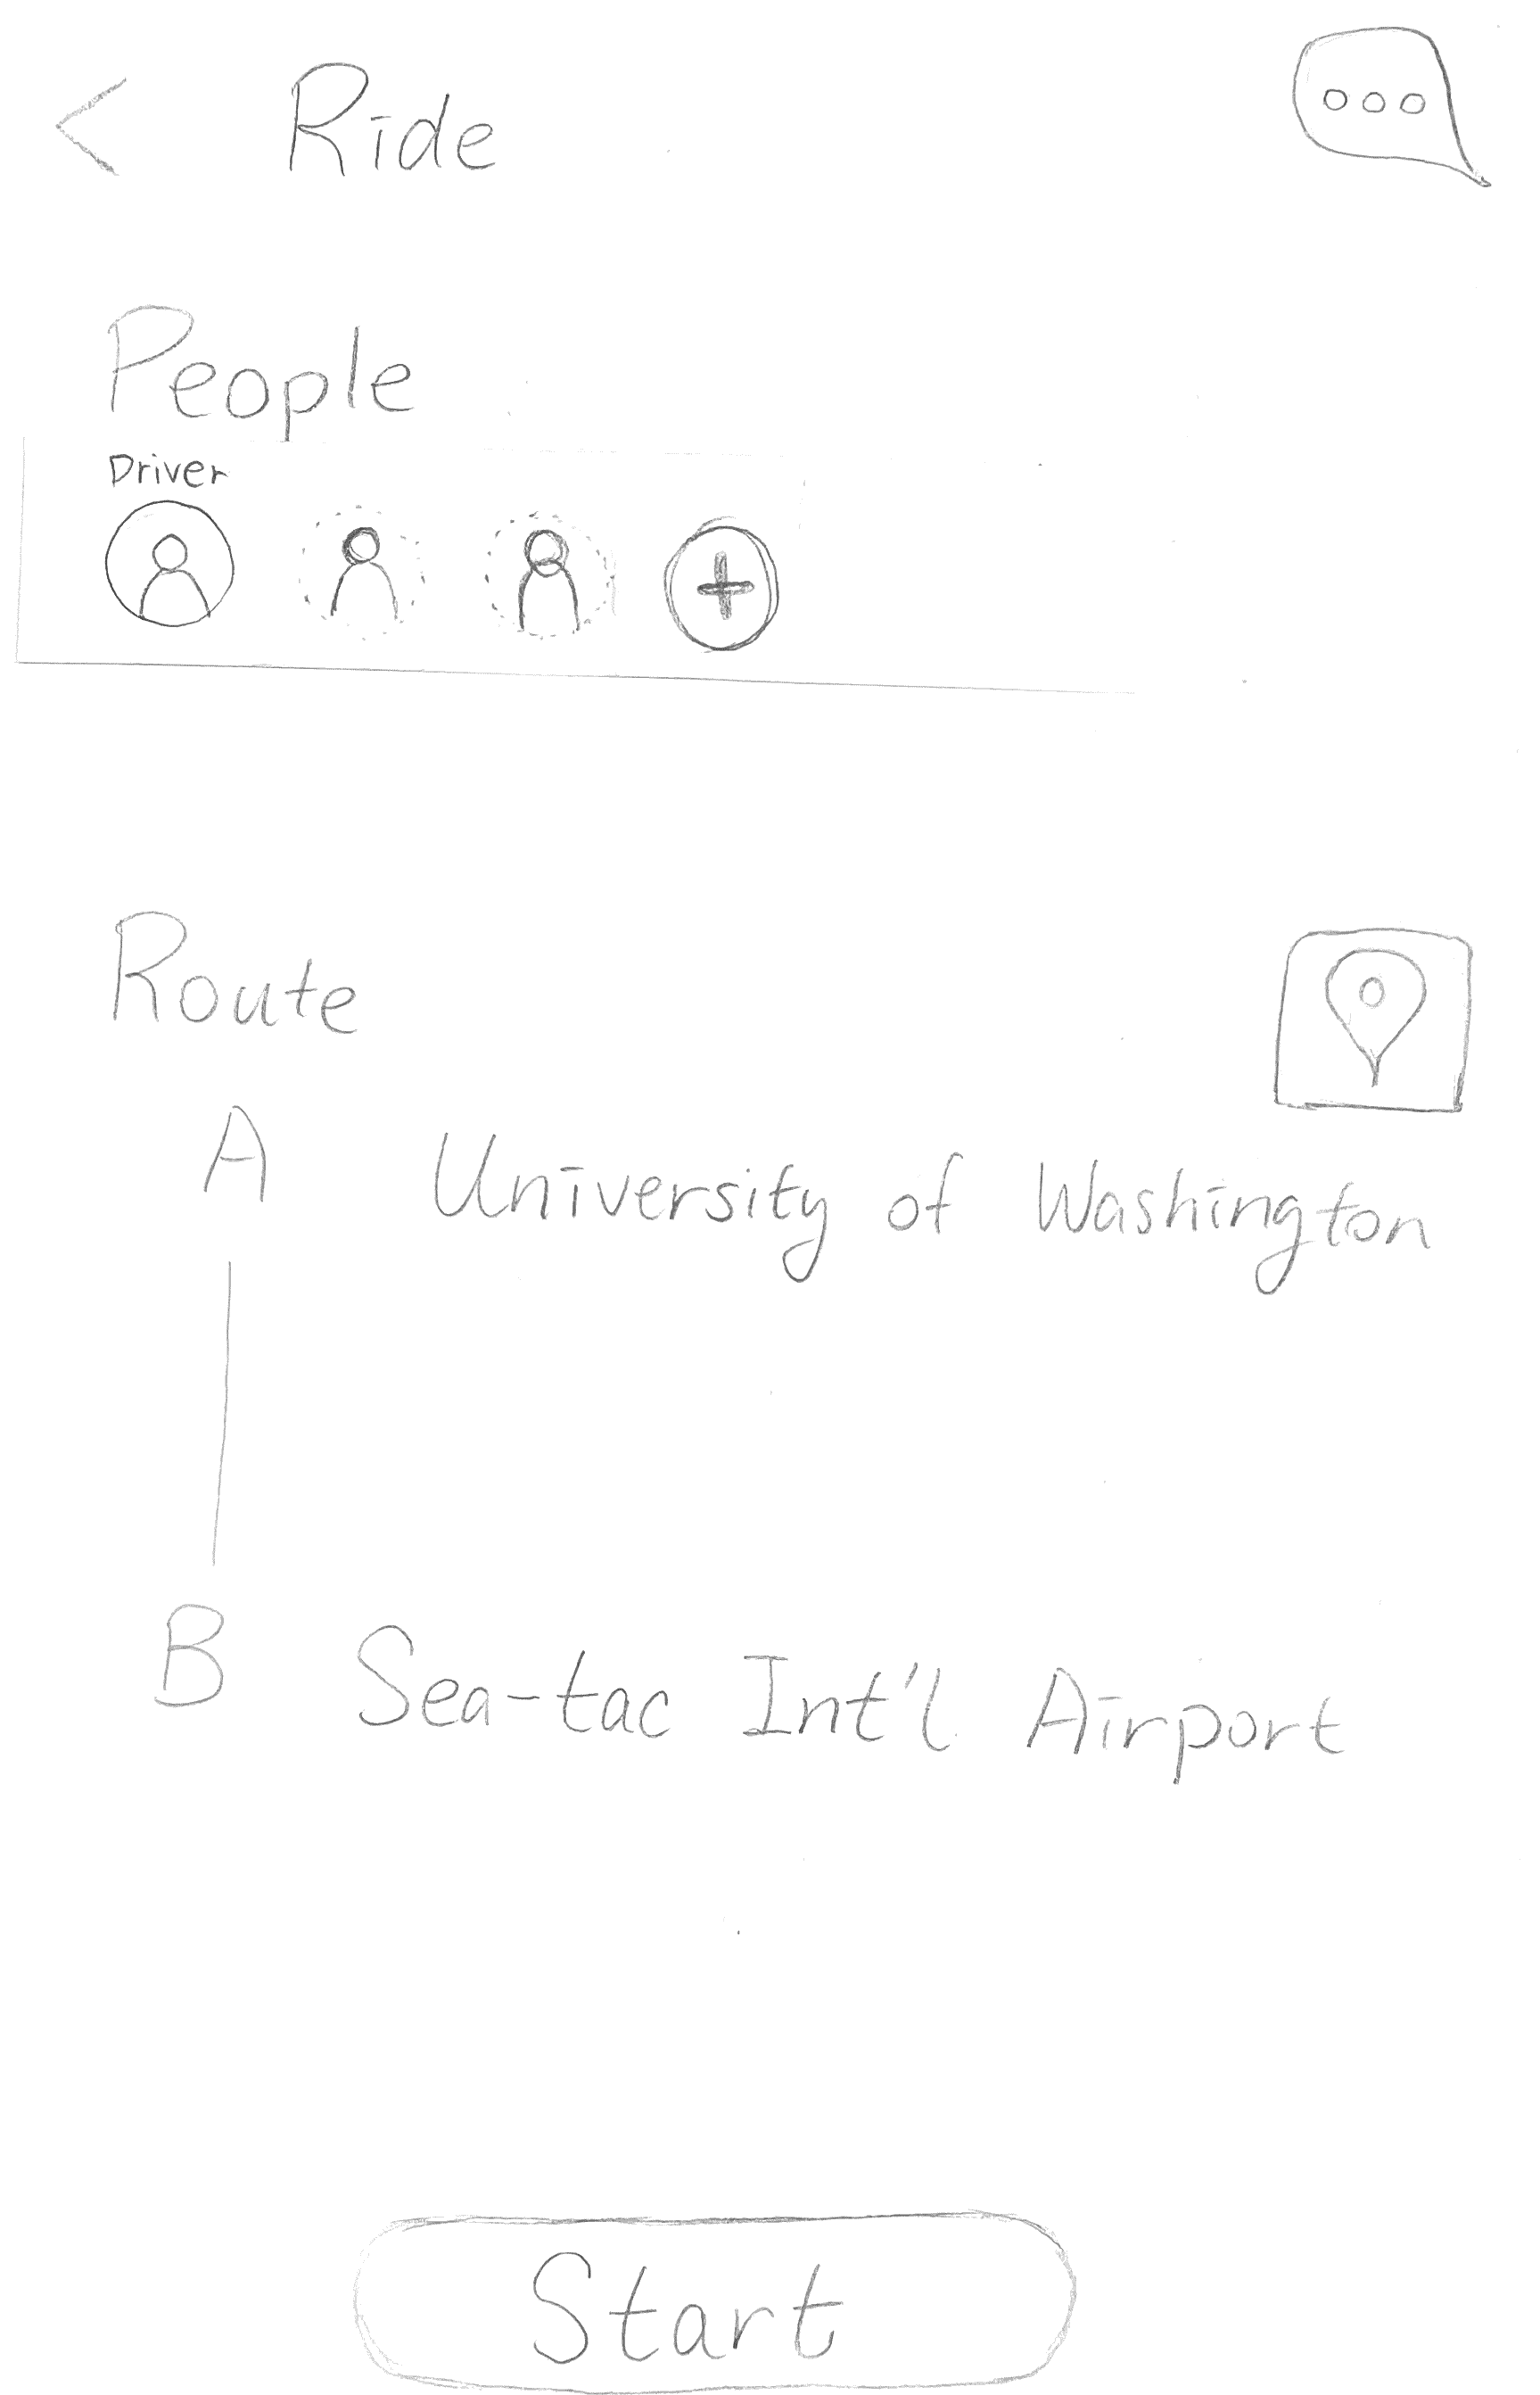 Ride
People
Driver
Route
A University of Washington
B Sea-tac Int'l Airport
Start